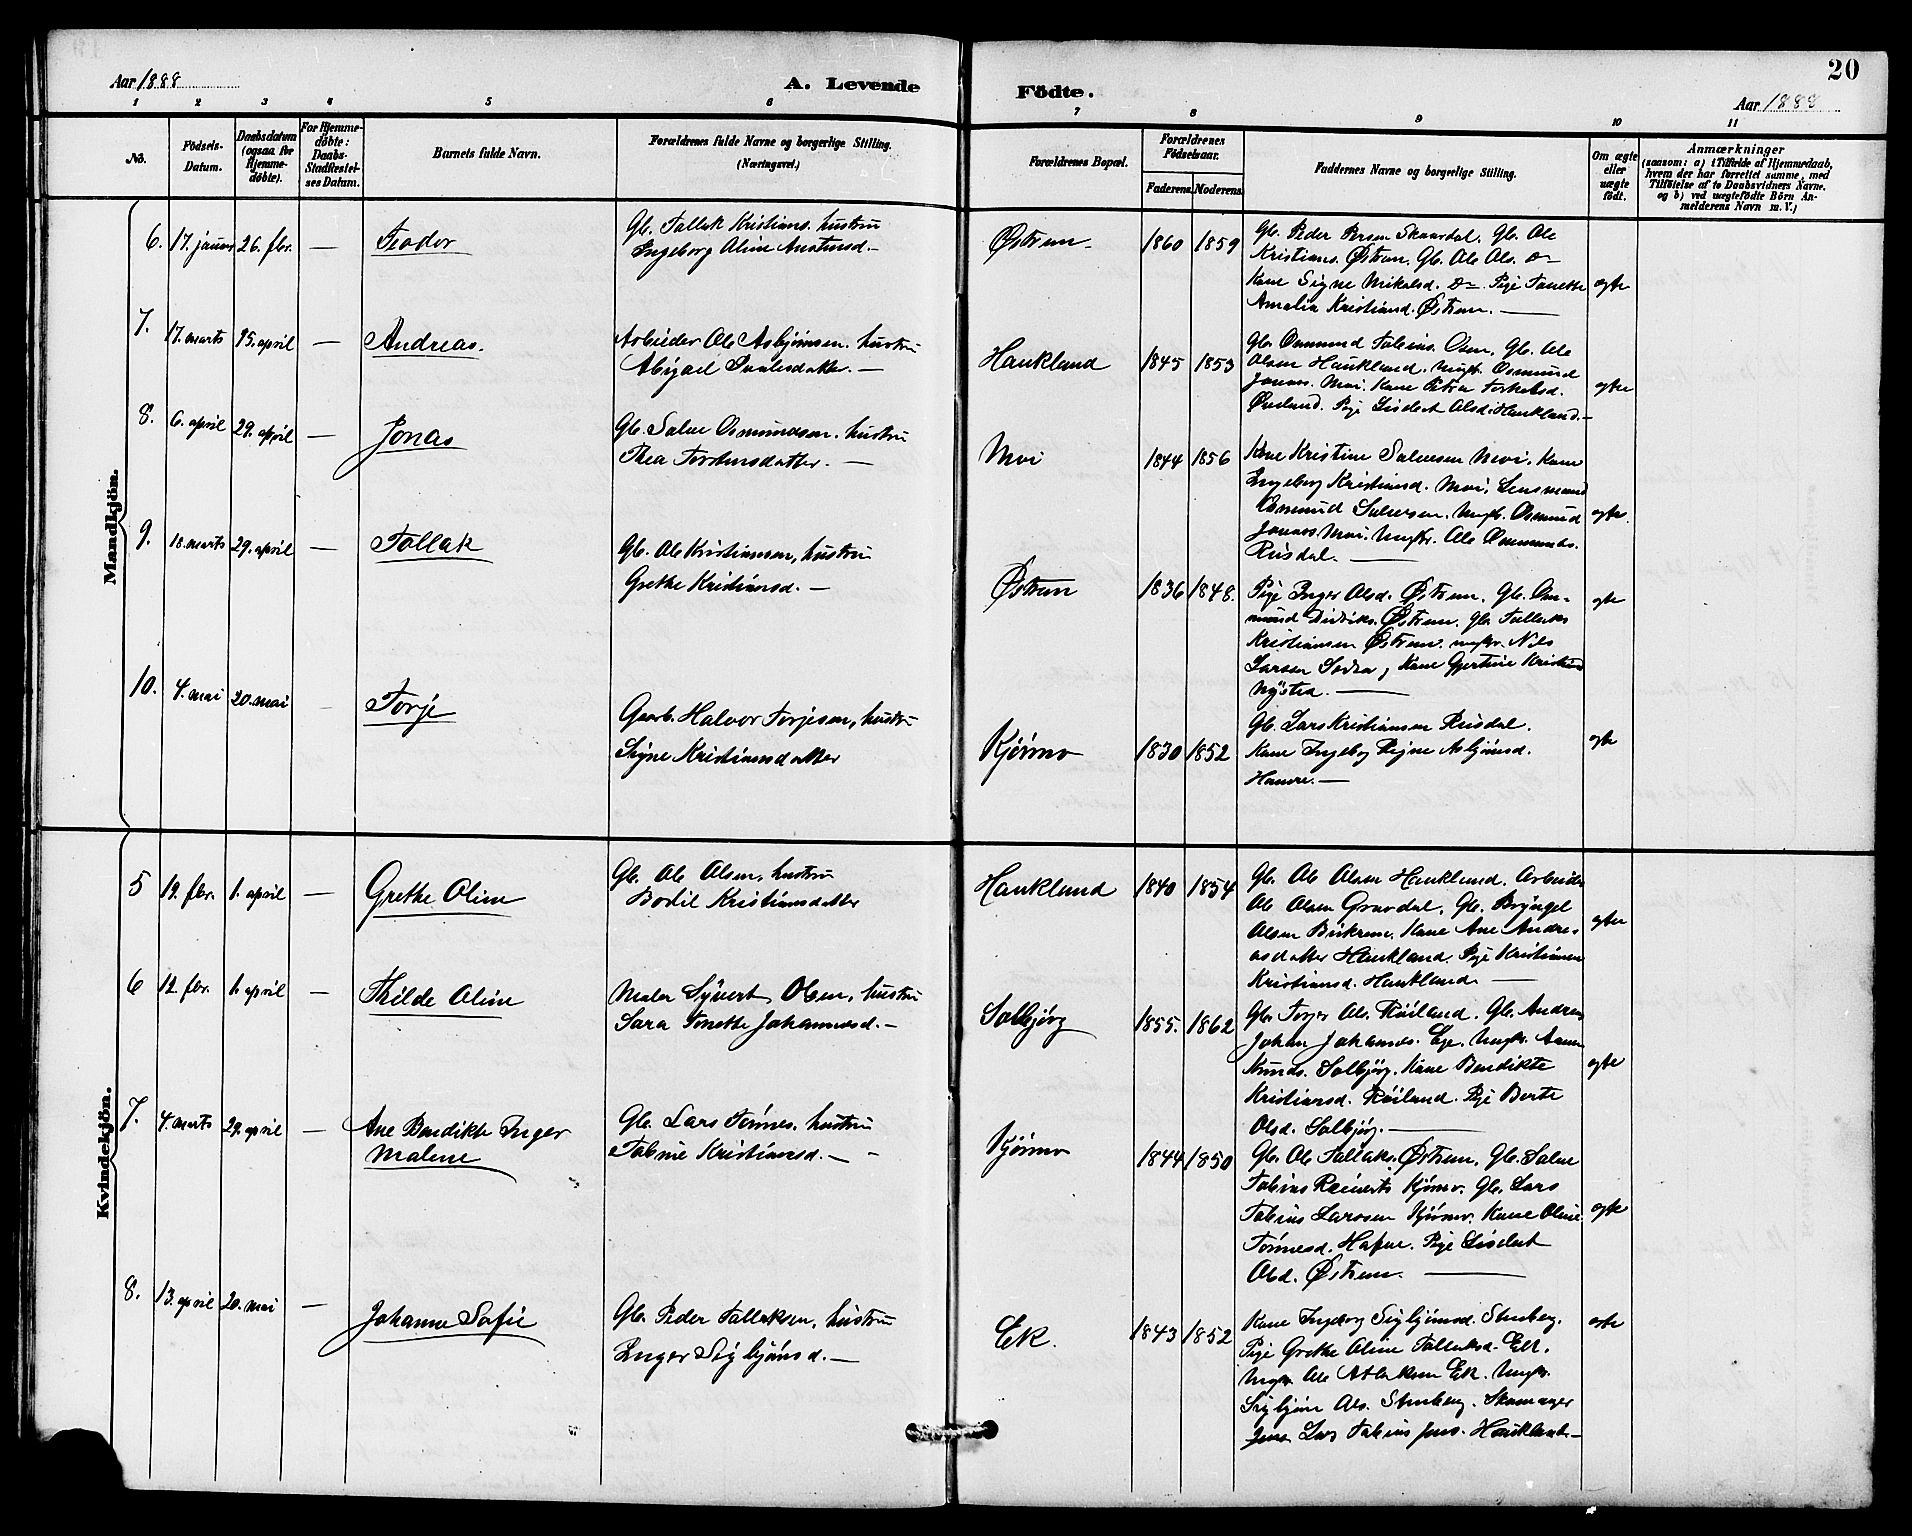 Aar 1888
A. Levende
Födte.
20
Aar 1888
1 2 3 4 5 6 7 8 9 10 11
No. Födsels-Datum. Daabsdatum (ogsaa for Hjemme-døbte). For Hjemme-døbte: Daabs-Stadfæstelses Datum. Barnets fulde Navn. Forældrenes fulde Navne og borgerlige Stilling. (Næringsvei.) Forældrenes Bopæl. Forældrenes Födselsaar. Faderens. Moderens. Faddernes Navne og borgerlige Stilling. Om ægte eller uægte födt. Anmærkninger (saasom: a) i Tilfælde af Hjemmedaab, hvem der har forrettet samme, med Tilföielse af to Daabsvidners Navne, og b) ved uægtefödte Börn Anmelderens Navn m. V.)
Mandkjön.
6. 17. januar 26. fbr. — Teodor
Gb. Tallak Kristians. hustru
Ingeborg Oline Aanensd. —
Østrem 1860 1859
Gb. Peder Persen Skaardal. Gb. Ole
Kristians. Østrem. Gb. Ole Ols. do
Kone Signe Mikalsd. do. Pige Tonette
Amalia Kristiansd. Østrem. —
ægte
7. 17. marts 15. april — Andreas.
Arbeider Ole Asbjørnsen. hustru
Abigael Paulsdatter. —
Haukland 1845 1853
Gb. Osmund Tobias. Osen. Gb. Ole
Olsen Haukland. Ungk. Osmund
Jonas. Moi. Kone Petra Torkelsd.
Ørsland. Pige Liselert Olsd. Haukland. —
ægte
8. 6. april 29. april — Jonas
Gb. Salve Osmundsen. hustru
Thea Torstensdatter. —
Moi 1844 1856
Kone Kristine Salvesen Moi. Kone
Ingeborg Kristiansd. Moi. Lensmand
Osmund Salvesen. Ungk. Osmund
Jonas Moi. Ungkr. Ole Osmunds.
Risdal. —
ægte.
9. 18. marts 29. april — Tallak
Gb. Ole Kristiansen, hustru
Grethe Kristiansd. —
Østrem 1836 1848.
Pige Inger Olsd. Østrem. Gb. Os-
mund Didriks. Østrem. Gb. Tallaks
Kristiansen Østrem. ungkr. Nils
Larsen Sodra, Kone Gjertine Kristians
Nysted. —
ægte
10. 4. mai 20. mai Torje
Gaarb. Halvor Torjesen, hustru
Signe Kristiansdatter
Kjørmo 1830 1852
Gb. Lars Kristiansen Risdal.
Kone Ingeborg Regine Asbjörnsd.
—
ægte
Kvindekjön.
5 19. fbr. 1. april — Grethe Oline
Gb. Ole Olsen, hustru
Bodil Kristiansdatter
Haukland 1840 1854
Gb. Ole Olsen Haukland. Arbeider
Ole Olsen Gravdal. Gb. Bryngel
Olsen Birkrem. Kone Ane Andre-
asdatter Haukland. Pige Kristianne
Kristiansd. Haukland —
ægte
6 12. fbr. 1. april — Thilde Oline
Maler Syvert Olsen, hustru
Sara Tonette Johannesd. —
Solbjørg 1855. 1862
Gb. Torjer Ols. Røiland. Gb. Andreas
Johan Johannes. Ege. Ungkr. Aanen
Knuds. Solbjørg. Kone Bendikte
Kristiansd. Røiland. Pige Berte
Olsd. Solbjørg. —
ægte
7. 4. marts 29. april — Ane Bendikte Inger
Malene
Gb. Lars Tønnes. hustru
Tabine Kristiansd. —
Kjørmo 1844 1850
Gb. Ole Tallaks. Østrem. Gb. Salve
Tobias Reinerts Kjørmo. Gb. Lars
Tobias Larssen Kjørmo. Kone Oline
Tønnesd. Hafsøe. Pige Liselert
Olsd. Østrem. —
ægte
8. 13. april 20. mai — Johanne Sofie
Gb. Peder Tallaksen, hustru
Inger Sigbjönsd. —
Ek. 1843 1852
Kone Ingeborg Sigbjönsd. Stenberg.
Pige Grethe Oline Tallaksd. Ek.
Ungkr. Ole Atlaksen Ek. Ungkr.
Sigbjön Ols. Stenberg. Skomager
Jens Lars Tobias Jens. Haukland. —
ægte